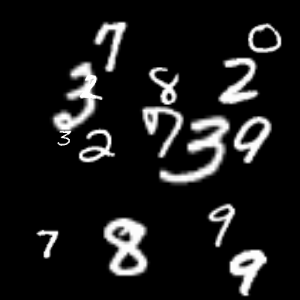 7 0
3 2 8 2
3 2 7 3 9
7 8 9
9